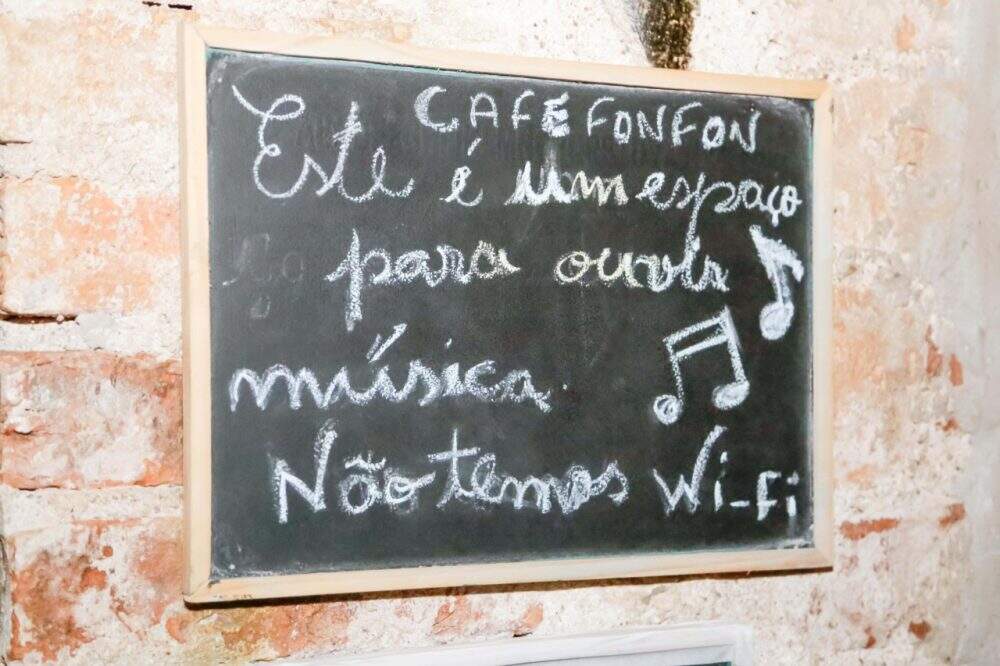 CAFÉ FONFON
Este é um espaço
para ouvir
música.
Não temos Wi-Fi